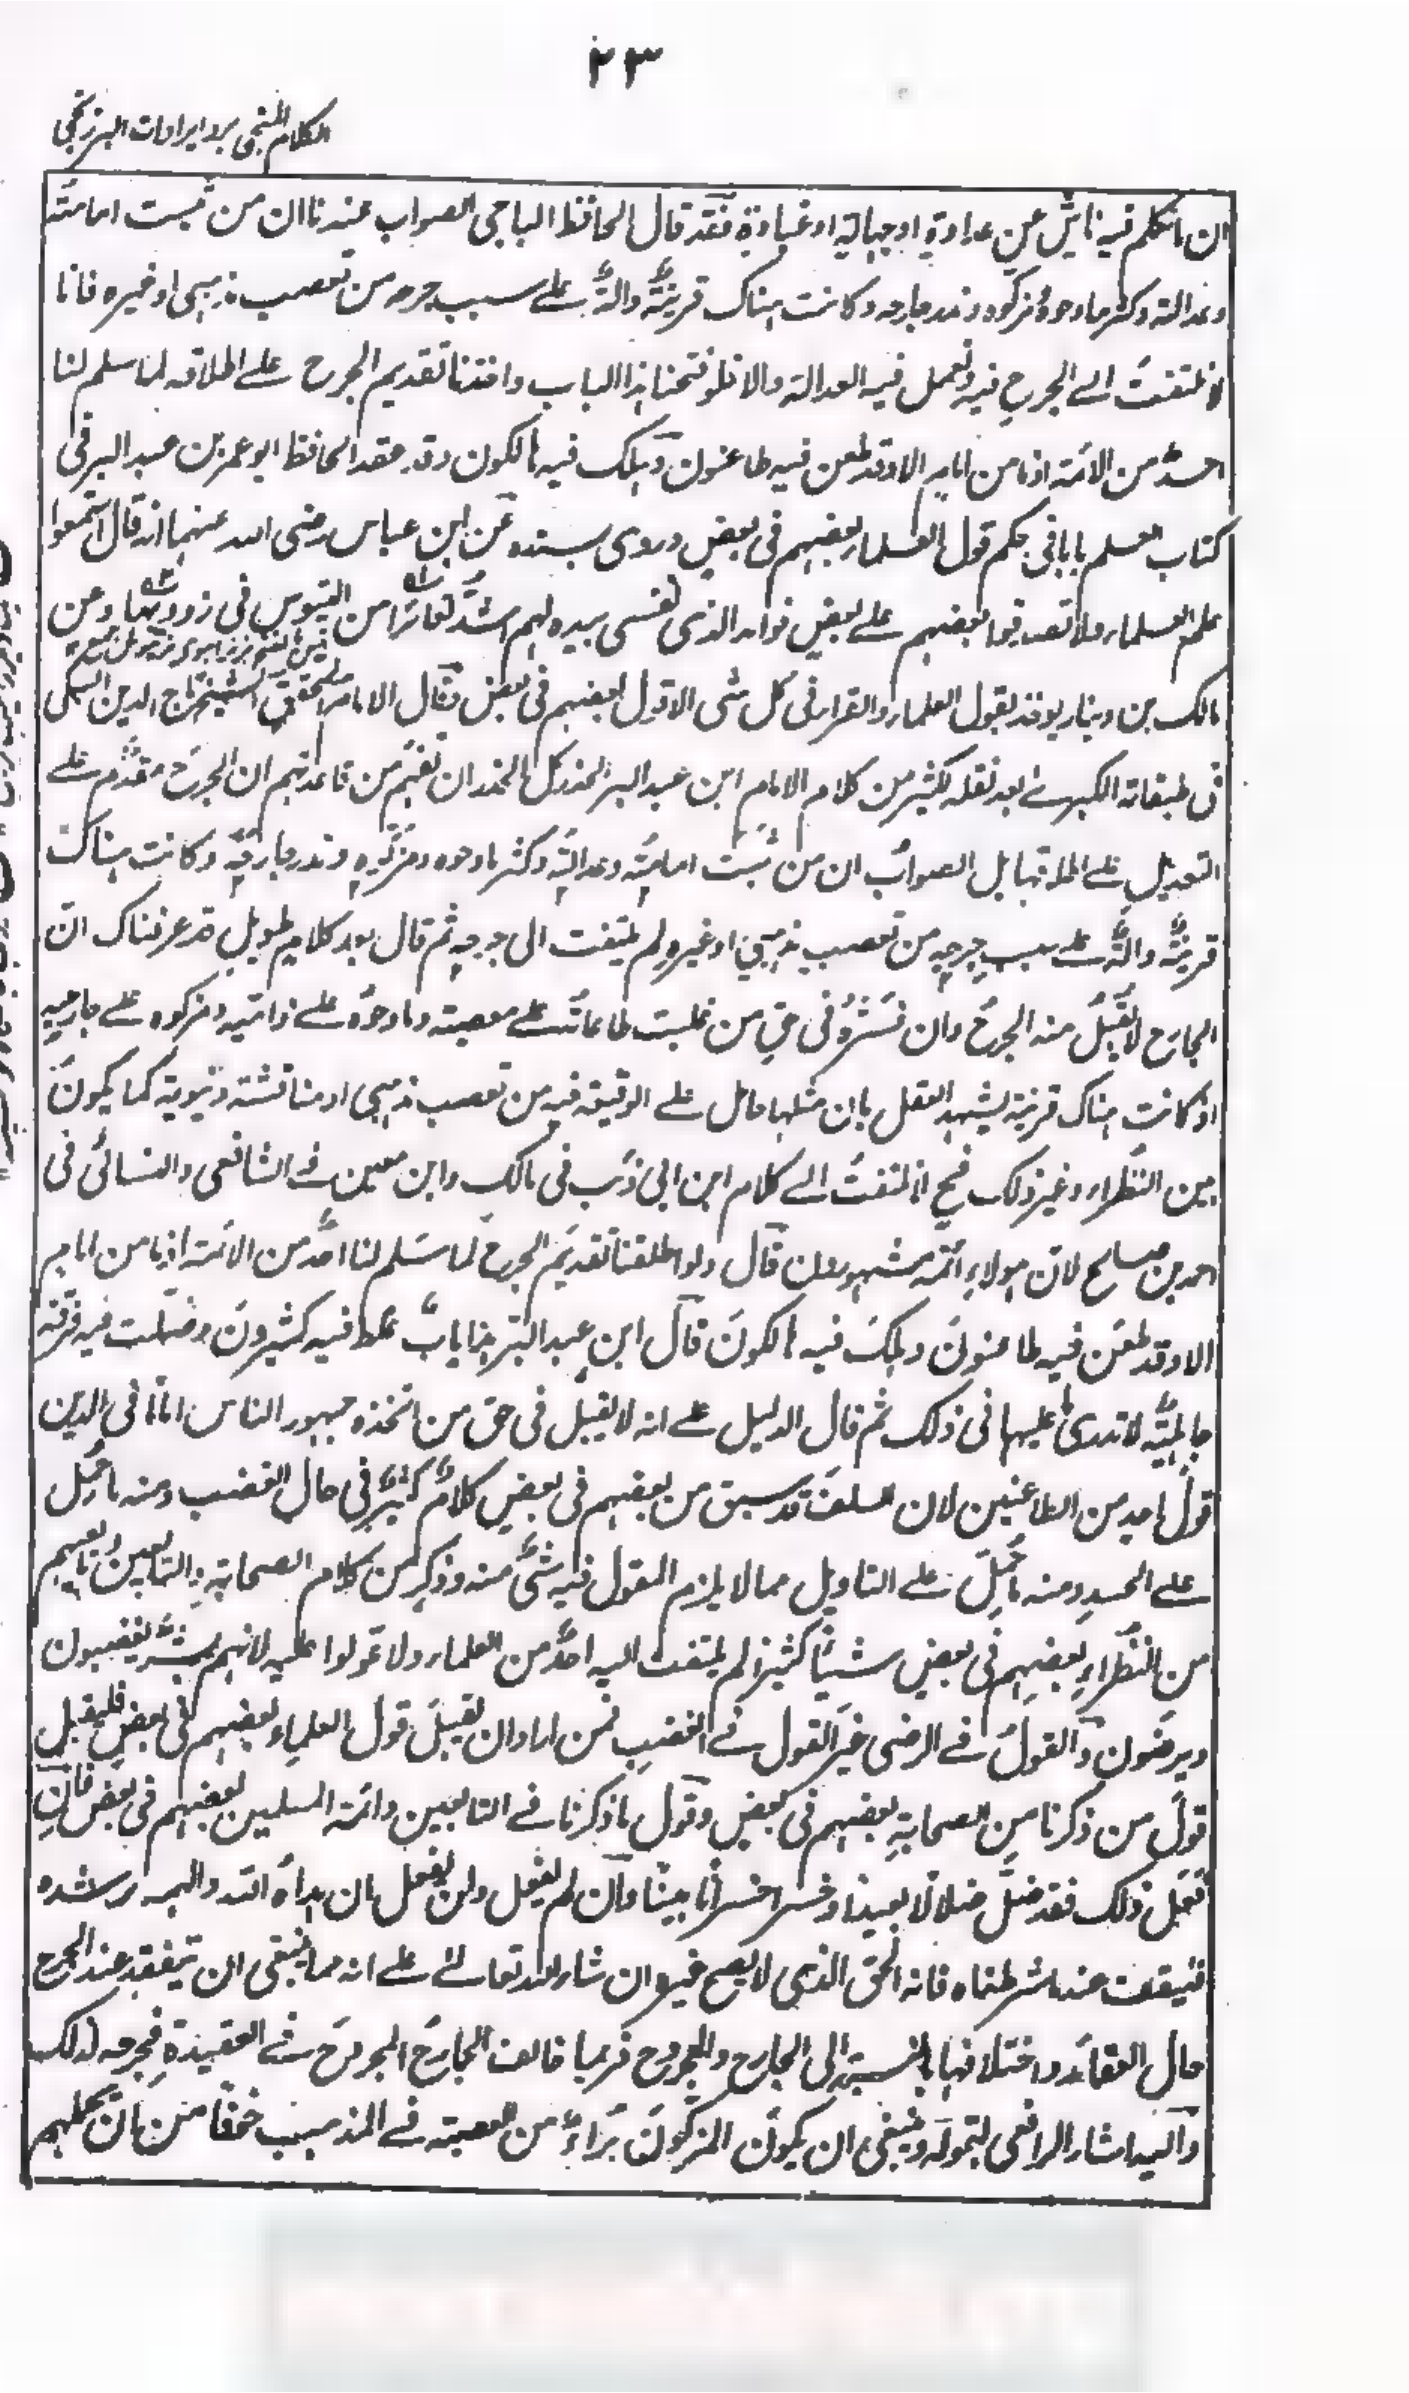 ٢٣
الكلام المنجى برد ايرادات البرزنجى
ان المتكلم فيه ناش عن عداوة او جهالة او غباوة فقد قال الحافظ الباجى الصواب عندنا ان من ثبتت امامته
وعدالته وكثر مادحوه ومزكوه وندر جارحه وكانت هناك قرينة دالة على سبب جرحه من تعصب مذهبى او غيره فانا
لا نلتفت الى الجرح فيه ونعمل فيه العدالة والا فلو فتحنا هذا الباب واخذنا تقديم الجرح على اطلاقه لما سلم لنا
احد من الائمة اذ ما من امام الا وقد طعن فيه طاعنون وهلك فيه هالكون وقد عقد الحافظ ابو عمر بن عبد البر فى
كتاب العلم بابا فى حكم قول العلماء بعضهم فى بعض وروى بسنده عن ابن عباس رضى الله عنهما انه قال استمعوا
علم العلماء ولا تصدقوا بعضهم على بعض فوالذى نفسى بيده لهم اشد تغائرا من التيوس فى زروبها وعن
مالك بن دينار يوخذ بقول العلماء والقراء فى كل شى الا قول بعضهم فى بعض وقال الامام المحقق الشيخ تاج الدين السبكى
فى طبقاته الكبرى بعد نقله لكثير من كلام الامام ابن عبد البر الحذر كل الحذر ان تفهم من قاعدتهم ان الجرح مقدم على
التعديل على اطلاقها بل الصواب ان من ثبتت امامته وعدالته وكثر مادحوه ومزكوه وندر جارحه وكانت هناك
قرينة دالة على سبب جرحه من تعصب مذهبى او غيره لم يلتفت الى جرحه ثم قال بعد كلام طويل قد عرفناك ان
الجارح لا يقبل منه الجرح وان فسره فى حق من غلبت طاعاته على معصيته ومادحوه على ذاميه ومزكوه على جارحيه
اذ كانت هناك قرينة يشهد العقل بان مثلها حامل على الوقيعة فيه من تعصب مذهبى او منافسة دنيوية كما يكون
بين النظراء وغير ذلك فح لا نلتفت الى كلام ابن ابى ذئب فى مالك وابن معين فى الشافعى والنسائى فى
احمد بن صالح لان هولاء ائمة مشهورون قال ولو اطلقنا تقديم الجرح لما سلم لنا احد من الائمة اذ ما من امام
الا وقد طعن فيه طاعنون وهلك فيه هالكون قال ابن عبد البر هذا باب غلط فيه كثيرون وضلت فيه فرقة
جاهلية لا تدرى ما عليها فى ذلك ثم قال الدليل على انه لا يقبل فى حق من اتخذه جمهور الناس اماما فى الدين
قول احد من الطاعنين لان السلف قد سبق من بعضهم فى بعض كلام كثير فى حال الغضب ومنه ما حمل
على الحسد ومنه ما حمل على التاويل مما لا يلزم المقول فيه شى منه وذكر من كلام الصحابة والتابعين وتابعيهم
من النظراء بعضهم فى بعض شيئا كثيرا لم يلتفت اليه احد من العلماء ولا عولوا عليه لانهم بشر يغضبون
ويرضون والقول فى الرضى غير القول فى الغضب فمن اراد ان يقبل قول العلماء بعضهم فى بعض فليقبل
قول من ذكرنا من الصحابة بعضهم فى بعض وقول ما ذكرنا فى التابعين وائمة المسلمين بعضهم فى بعض فان
فعل ذلك فقد ضل ضلالا بعيدا وخسر خسرانا مبينا وان لم يفعل ولن يفعل ان هداه الله والهمه رشده
فليقف عند ما شرطناه فانه الحق الذى لا يصح غيره ان شاء الله تعالى على انه مما ينبغى ان يتفقد عند الجرح
حال العقائد واختلافها بالنسبة الى الجارح والمجروح فربما خالف الجارح المجروح فى العقيدة فجرحه لذلك
واليه اشار الرافعى بقوله وينبغى ان يكون المزكون براء من العصبية فى المذهب خوفا من ان يحملهم